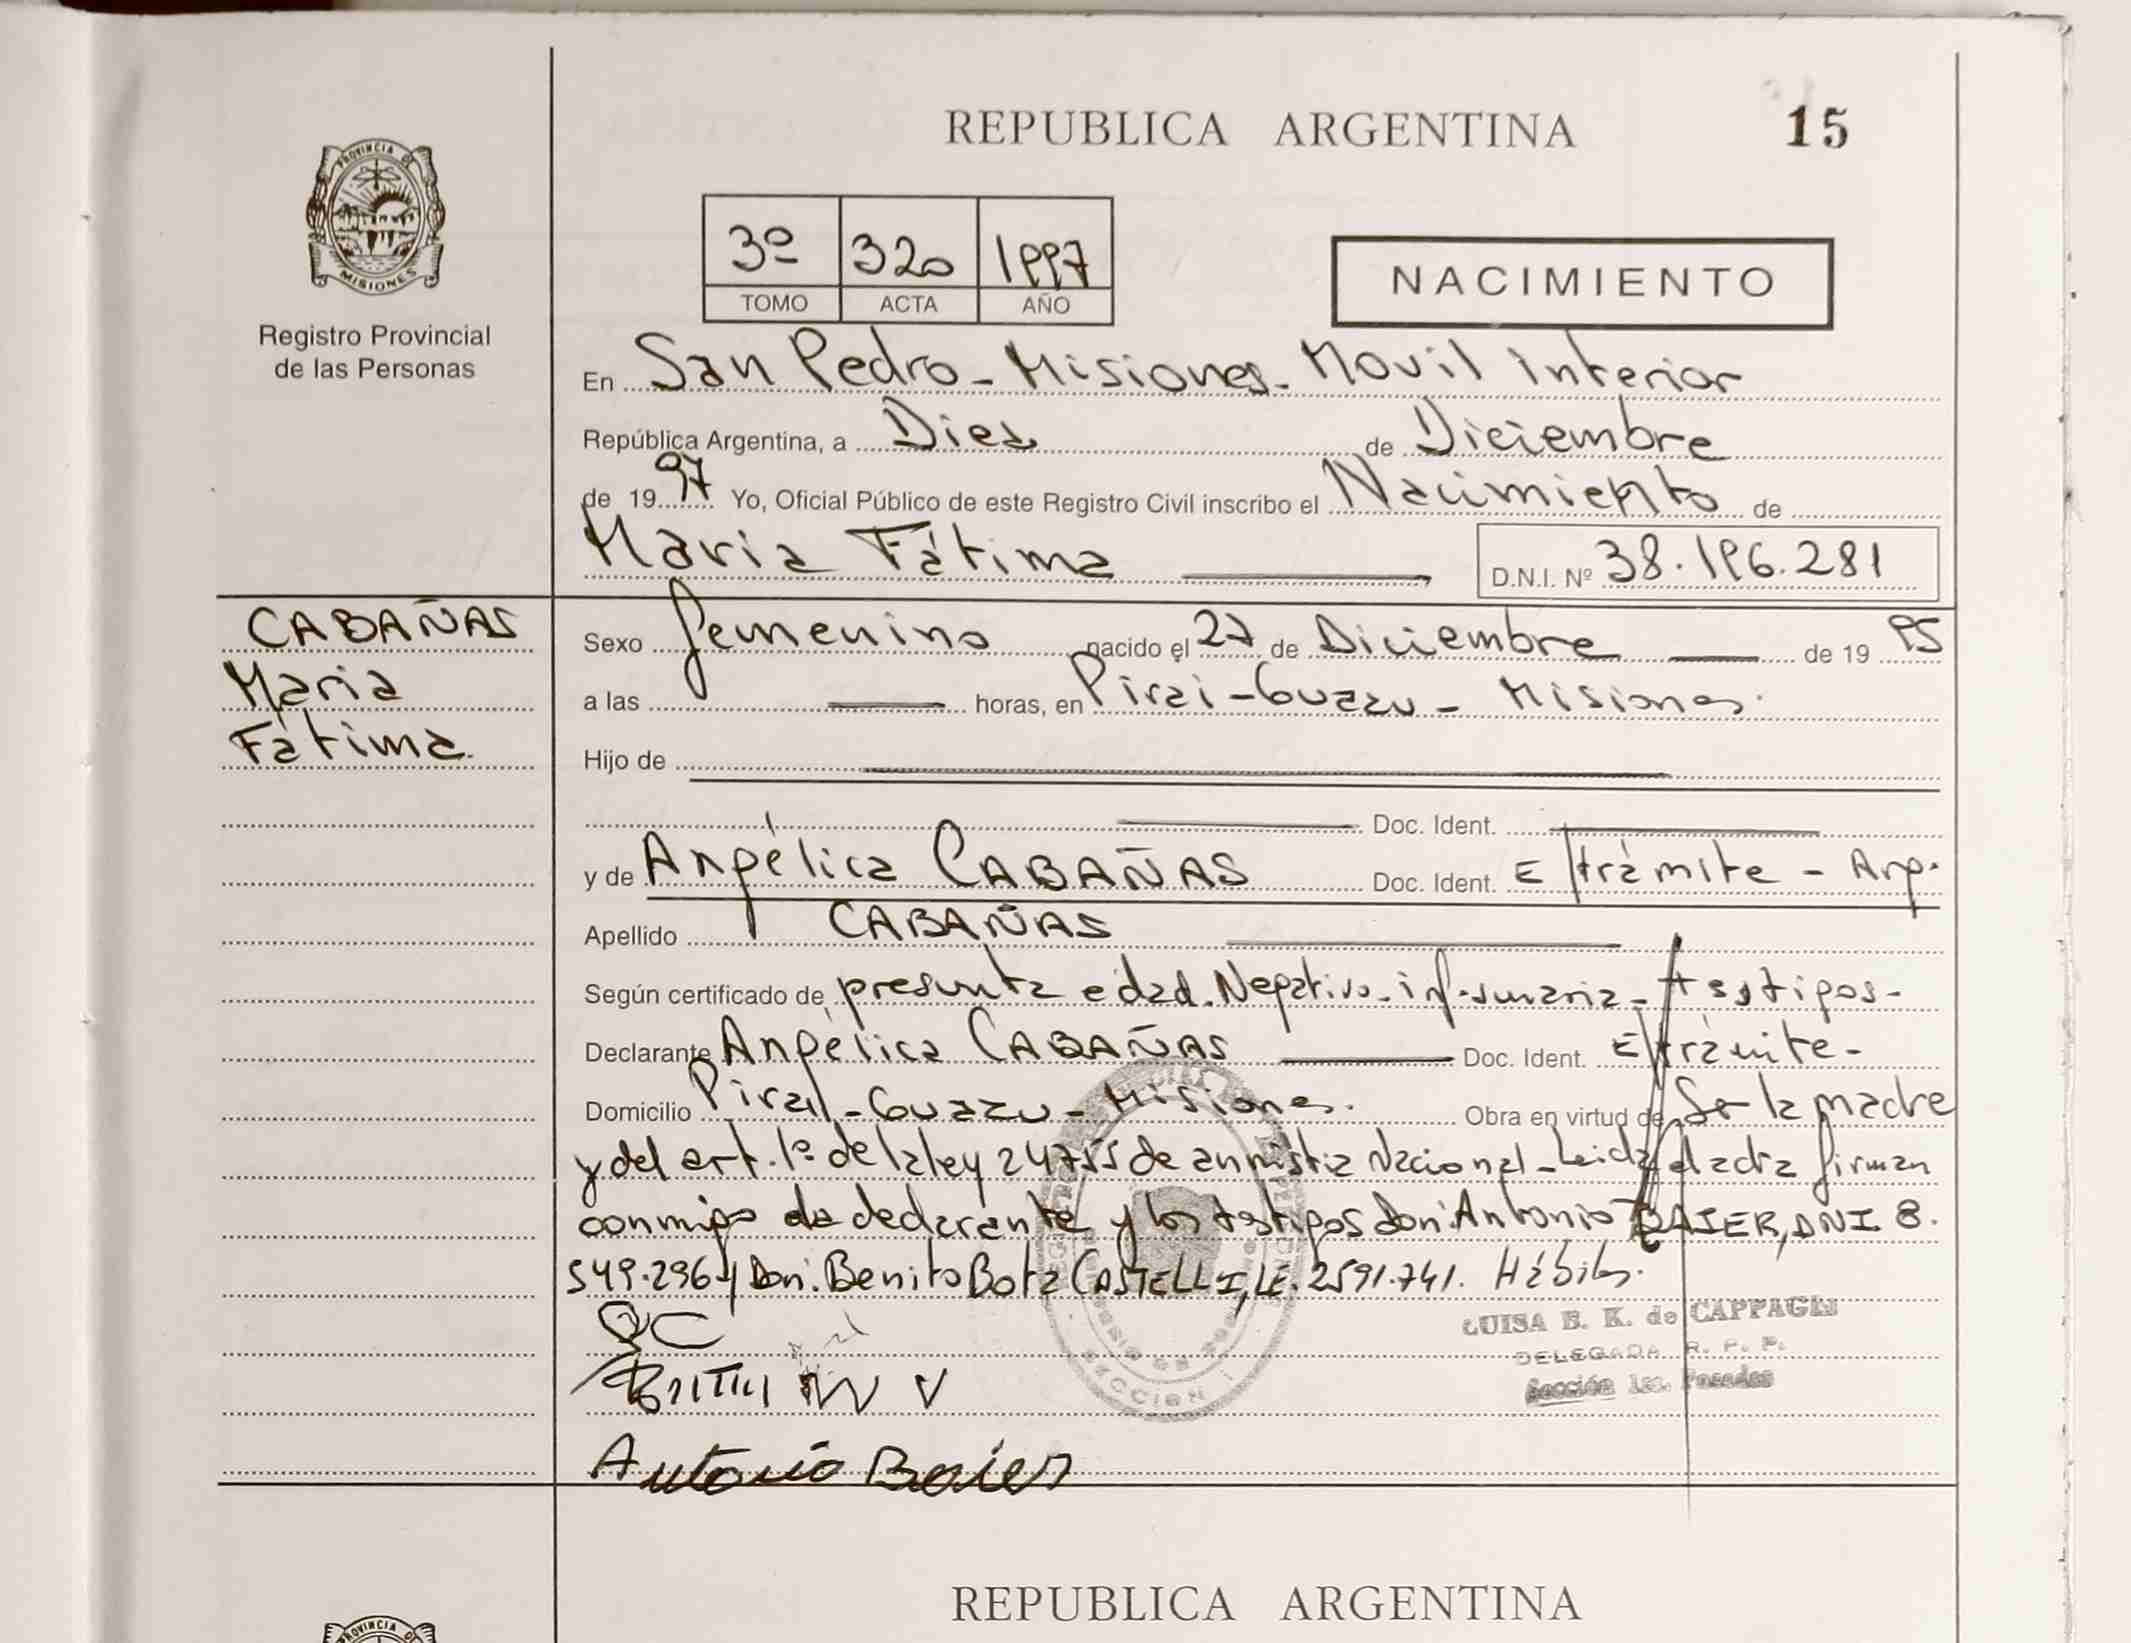 REPUBLICA ARGENTINA 15
PROVINCIA DE
MISIONES
Registro Provincial
de las Personas
3º 320 1997
TOMO ACTA AÑO
NACIMIENTO
En San Pedro - Misiones - Movil Interior
República Argentina, a Diez de Diciembre
de 1997 Yo, Oficial Público de este Registro Civil inscribo el Nacimiento de
Maria Fátima
D.N.I. Nº 38.196.281
CABAÑAS
Maria
Fátima.
Sexo femenino nacido el 27 de Diciembre de 1995
a las horas, en Pirai-Guazu - Misiones.
Hijo de
Doc. Ident.
y de Angélica CABAÑAS Doc. Ident. E/trámite - Arg.
Apellido CABAÑAS
Según certificado de presunta edad. Negativo - inf. sumaria - testigos -
Declarante Angélica CABAÑAS Doc. Ident. E/trámite -
Domicilio Pirai-Guazu - Misiones. Obra en virtud de Ser la madre
y del art. 1º de la ley 24755 de amnistia Nacional - Leida el acta firman
conmigo la declarante y los testigos Don: Antonio BAIER, DNI. 8.
549.296 y Don: Benito Bota CASTELLI, LE. 2591.741. Hábiles.
LUISA B. K. de CAPPAGLI
DELEGADA R. P. P.
Sección 1ra. Posadas
SECCION 1
Antonio Baier
REPUBLICA ARGENTINA
PROVINCIA DE